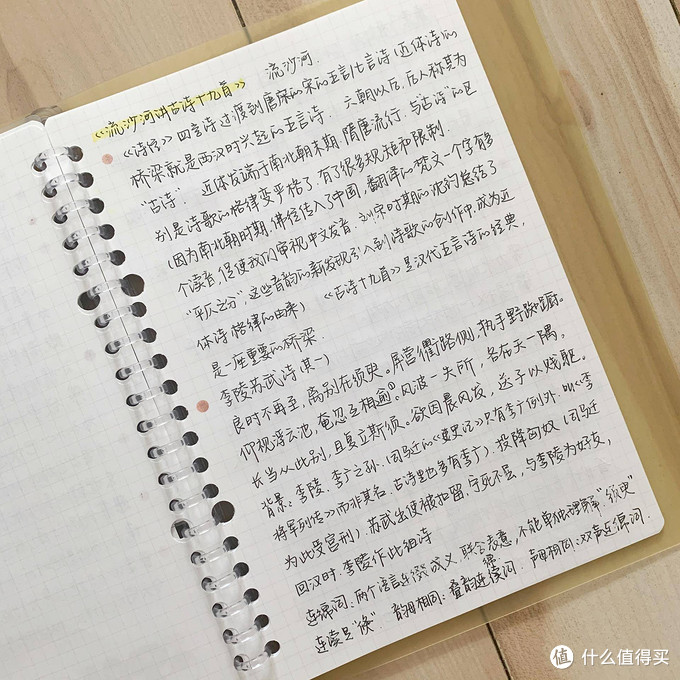 流沙河
《流沙河讲古诗十九首》
《诗经》四言诗过渡到唐宋的宋的五言七言诗(近体诗)的
桥梁就是西汉时兴起的五言诗. 六朝以后,后人称其为
"古诗". 近体发端于南北朝末期.隋唐流行.与"古诗"的区
别是诗歌的格律变严格了.有了很多规矩和限制.
(因为南北朝时期,佛经传入了中国,翻译的梵文一个字有多
个读音,促使我们审视中文发音.刘宋时期的沈约总结了
"平仄之分",这些音韵的新发现引入到诗歌的创作中,成为近
体诗格律的由来) 《古诗十九首》是汉代五言诗的经典,
是一座重要的桥梁.
李陵苏武诗(其一)
良时不再至,离别在须臾。屏营衢路侧,执手野踟蹰。
仰视浮云池,奄忽互相逾。风波一失所,各在天一隅,
长当从此别,且复立斯须。欲因晨风发,送子以贱躯。
背景:李陵,李广之孙.(司马迁的《史记》只有李广例外.叫《李
将军列传》而非其名,古诗里也多有李广).投降匈奴(司马迁
为此受宫刑).苏武出使被扣留,宁死不屈,与李陵为好友,
回汉时,李陵作此组诗
连绵词:两个语言连缀成义,联合表意,不能单独理解"须臾"
连读是"倏". 韵母相同:叠韵连绵词. 声母相同:双声连绵词.
值 什么值得买